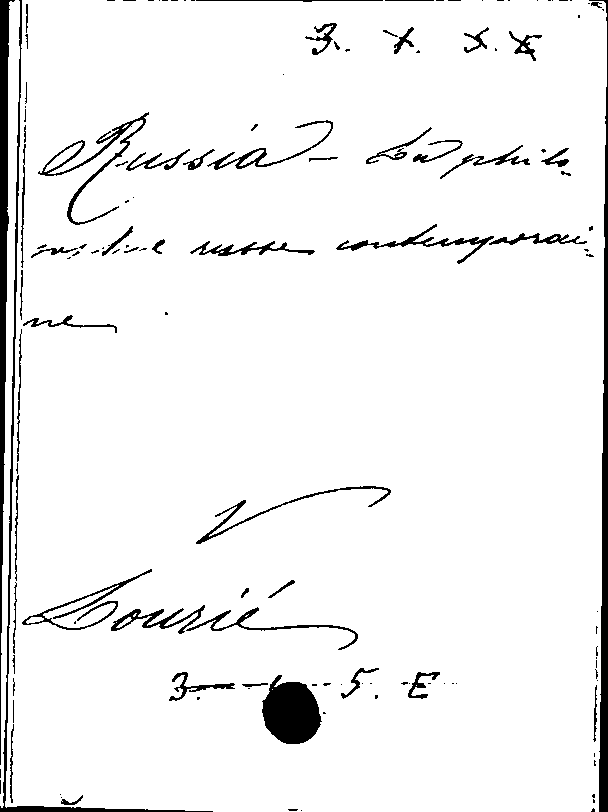 3. X. X. X E
Russia - La philo-
sophie russe contemporai-
ne
V
Lourié
3 5. E